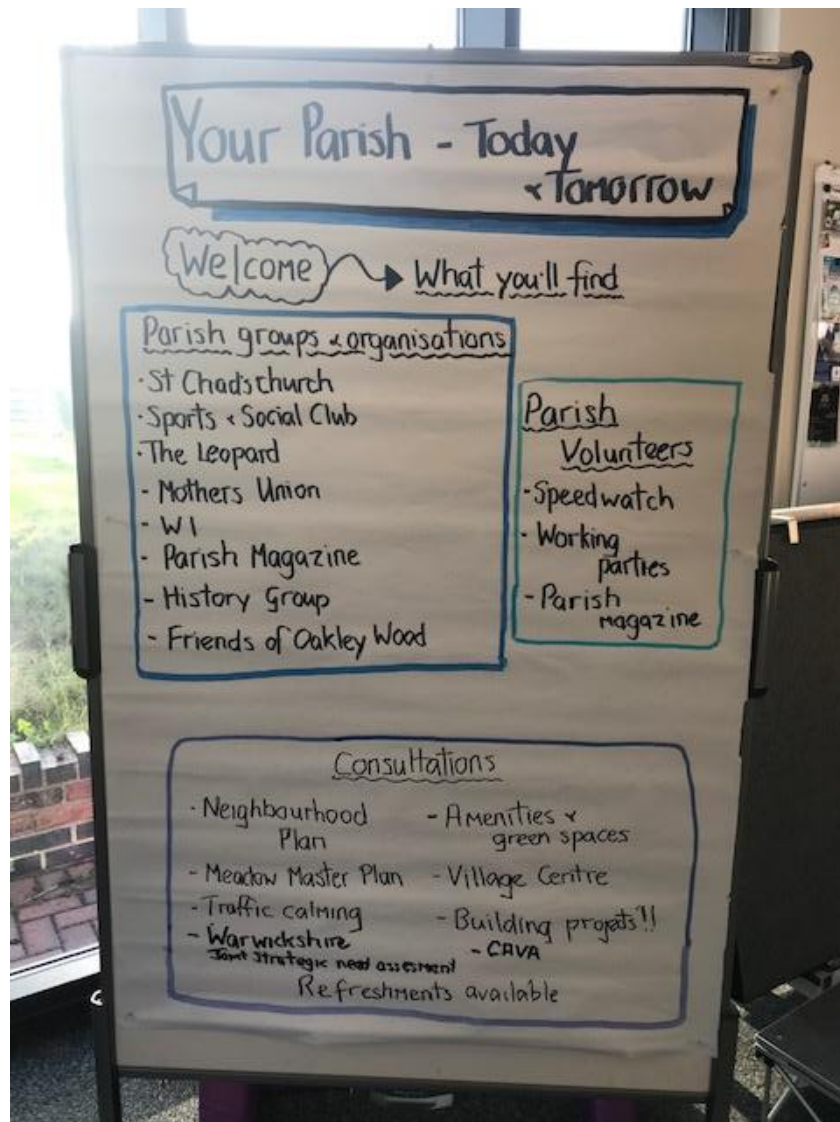 Your Parish - Today
& Tomorrow
Welcome
What you'll find
Parish groups & organisations
· St Chad's church
· Sports & Social Club
· The Leopard
- Mothers Union
- WI
- Parish Magazine
- History Group
- Friends of Oakley Wood
Parish
Volunteers
- Speedwatch
- Working
parties
- Parish
magazine
Consultations
· Neighbourhood
Plan
- Meadow Master Plan
- Traffic calming
- Warwickshire
Joint Strategic need assesment
- Amenities &
green spaces
- Village Centre
- Building projets!!
- CAVA
Refreshments available